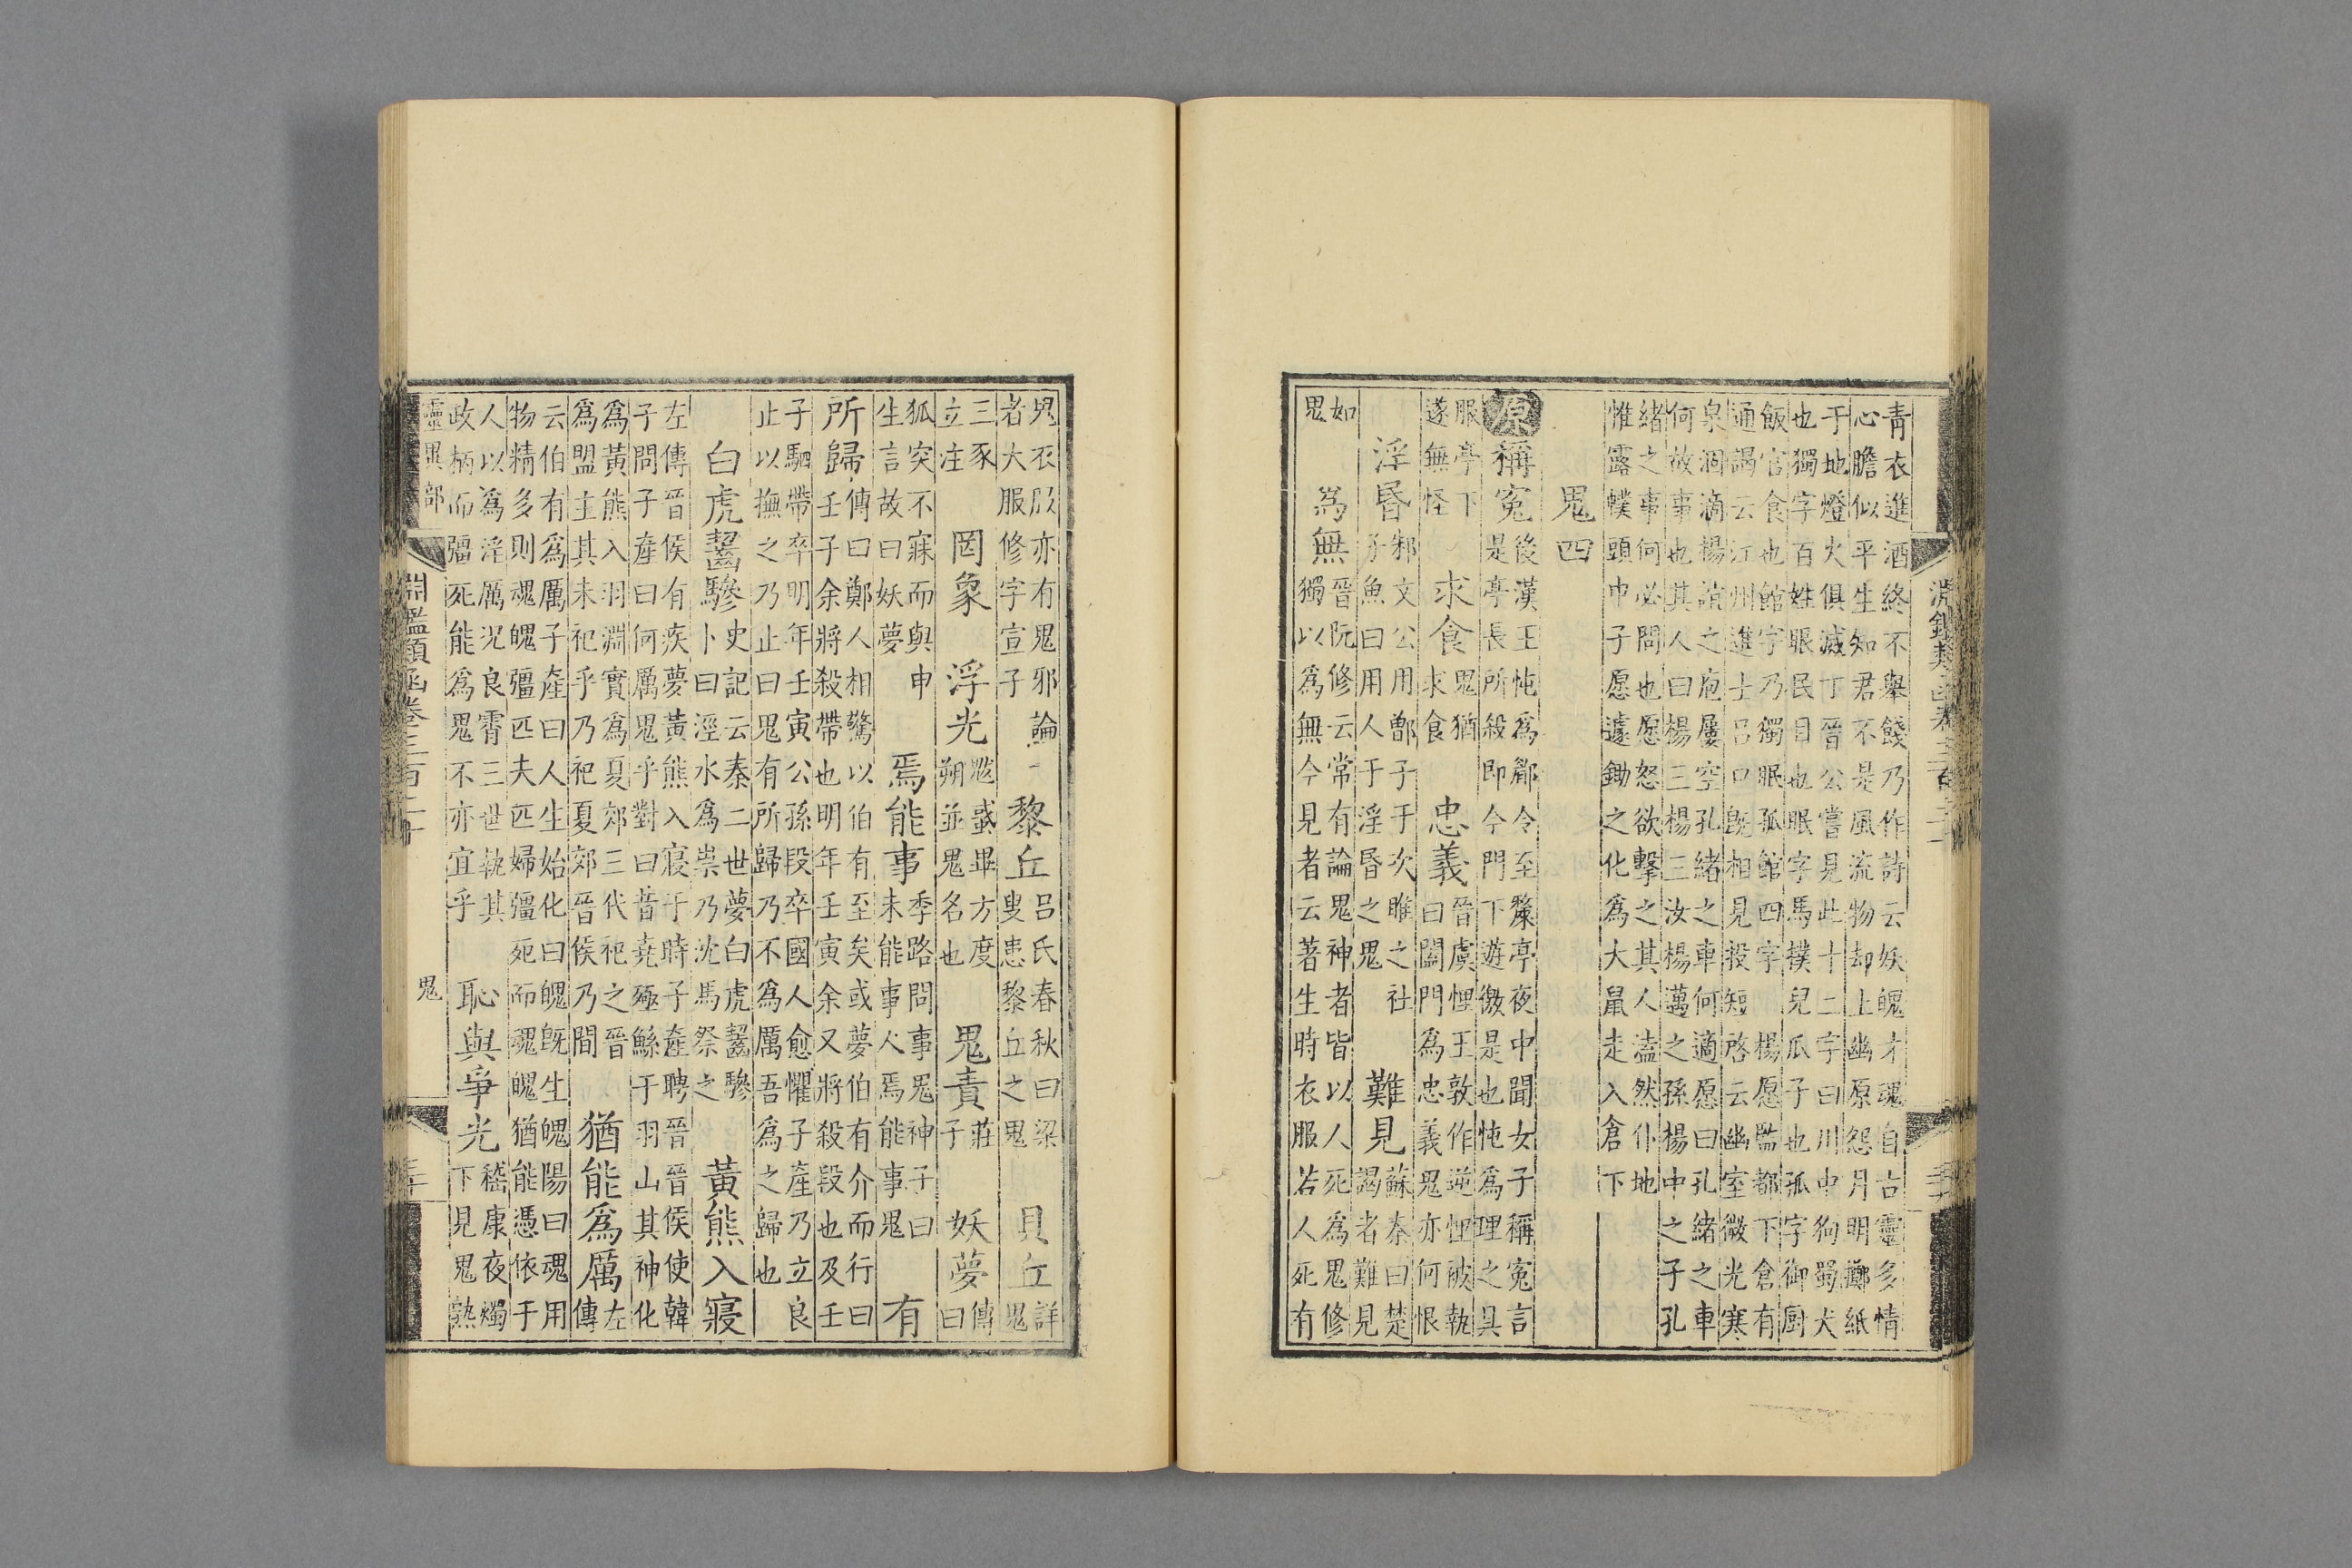 青衣進酒終不舉餞乃作詩云妖魄才魂自古靈多情
心膽似平生知君不是風流物却上幽原怨月明擲紙
于地燈火俱滅丁晉公嘗見此十二字曰川中狗蜀犬
也獨字百姓眼民目也眠字馬撲兒瓜子也孤字御厨
飯官食也館字乃獨眠孤館四字 楊愿監都下倉有
通謁云江州進士呂口旣相見投短啓云幽室微光寒
泉涸滴楊誼之庖屢空孔緒之車何適愿曰孔緒之車
何故事也其人曰楊三楊三汝楊邁之孫楊中之子孔
緖之事何必問也愿怒欲擊之其人溘然仆地
惟露幞頭中子愿遽鋤之化爲大鼠走入倉下
鬼四
原稱冤後漢王忳爲郿令至斄亭夜中聞女子稱冤言
是亭長所殺即今門下遊徼是也忳爲理之具
服亭下
遂無怪 求食鬼猶
求食 忠義晉虞悝王敦作逆悝被執
曰闔門爲忠義鬼亦何恨
淫昏邾文公用鄫子于次睢之社
子魚曰用人于淫昏之鬼 難見蘇秦曰楚
謁者難見
如
鬼 爲無晉阮修云常有論鬼神者皆以人死爲鬼修
獨以爲無今見者云著生時衣服若人死有
鬼衣服亦有鬼邪論
者大服修字宣子 黎丘呂氏春秋曰梁
叟患黎丘之鬼 貝丘詳
鬼
三豕
立注 罔象 浮光魃蜮畢方度
朔並鬼名也 鬼責莊
子 妖夢傳
曰
狐突不寐而與申
生言故曰妖夢 焉能事季路問事鬼神子曰
未能事人焉能事鬼 有
所歸傳曰鄭人相驚以伯有至矣或夢伯有介而行曰
壬子余將殺帶也明年壬寅余又將殺段也及壬
子駟帶卒明年壬寅公孫段卒國人愈懼子產乃立良
止以撫之乃止曰鬼有所歸乃不爲厲吾爲之歸也
白虎齧驂史記云秦二世夢白虎齧驂
卜曰涇水爲祟乃沈馬祭之 黃熊入寢
左傳晉侯有疾夢黃熊入寢于時子產聘晉晉侯使韓
子問子產曰何厲鬼乎對曰昔堯殛鯀于羽山其神化
爲黃熊入羽淵實爲夏郊三代祀之晉
爲盟主其未祀乎乃祀夏郊晉侯乃間 猶能爲厲左
傳
云伯有爲厲子產曰人生始化曰魄旣生魄陽曰魂用
物精多則魂魄彊匹夫匹婦彊死而魂魄猶能憑依于
人以爲淫厲况良霄三世執其
政柄而彊死能爲鬼不亦宜乎 恥與爭光嵇康夜燭
下見鬼熟
靈異部 鬼
淵鑑類函卷三百二十